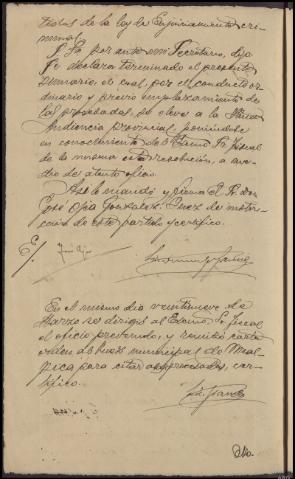 tículos de la ley de Enjuiciamiento cri-
minal
S. Sª por ante mi Secretario, dijo
Se declara terminado el presente
sumario, el cual, por el conducto or-
dinario y previo emplazamiento de
los procesados, se eleve a la Ilma
Audiencia provincial poniéndose
en conocimiento del Excmo Sr fiscal
de la misma esta resolución, a
medio de atento oficio.
Así lo mandó y firma el Sr don
José González Juez de instruc-
ción de este partido y certifico.
En el mismo dia veintinueve de
Marzo se dirigió al Excmo Sr fiscal
el oficio prevenido, y remitió carta
orden al Juez municipal de Mal-
pica para citar a los procesados, cer-
tifico.